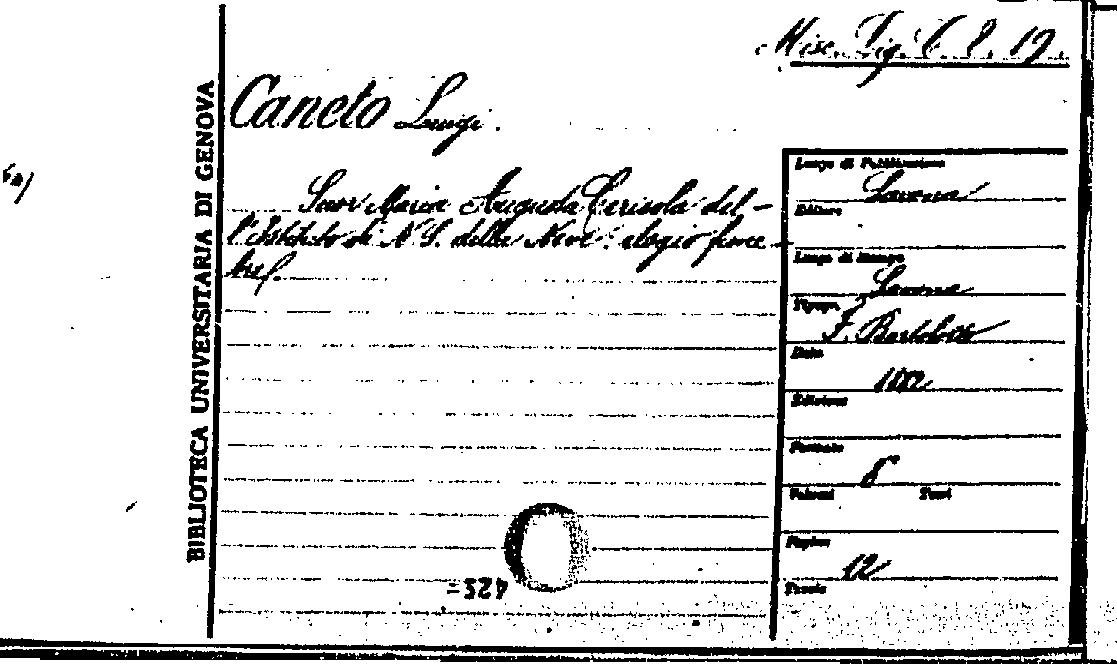 Misc. Lig. C. 8. 19.
BIBLIOTECA UNIVERSITARIA DI GENOVA
Caneto Luigi.
Suor Maria Augusta Cerisola del-
l'Istituto di N. S. della Neve: elogio fune-
bre.
Luogo di Pubblicazione
Savona
Editore
Luogo di stampa
Savona
Tipogr.
F. Bertolotto
Data
Edizione
Formato
8°
Volumi Tomi
Pagine
12
Tavole
425=